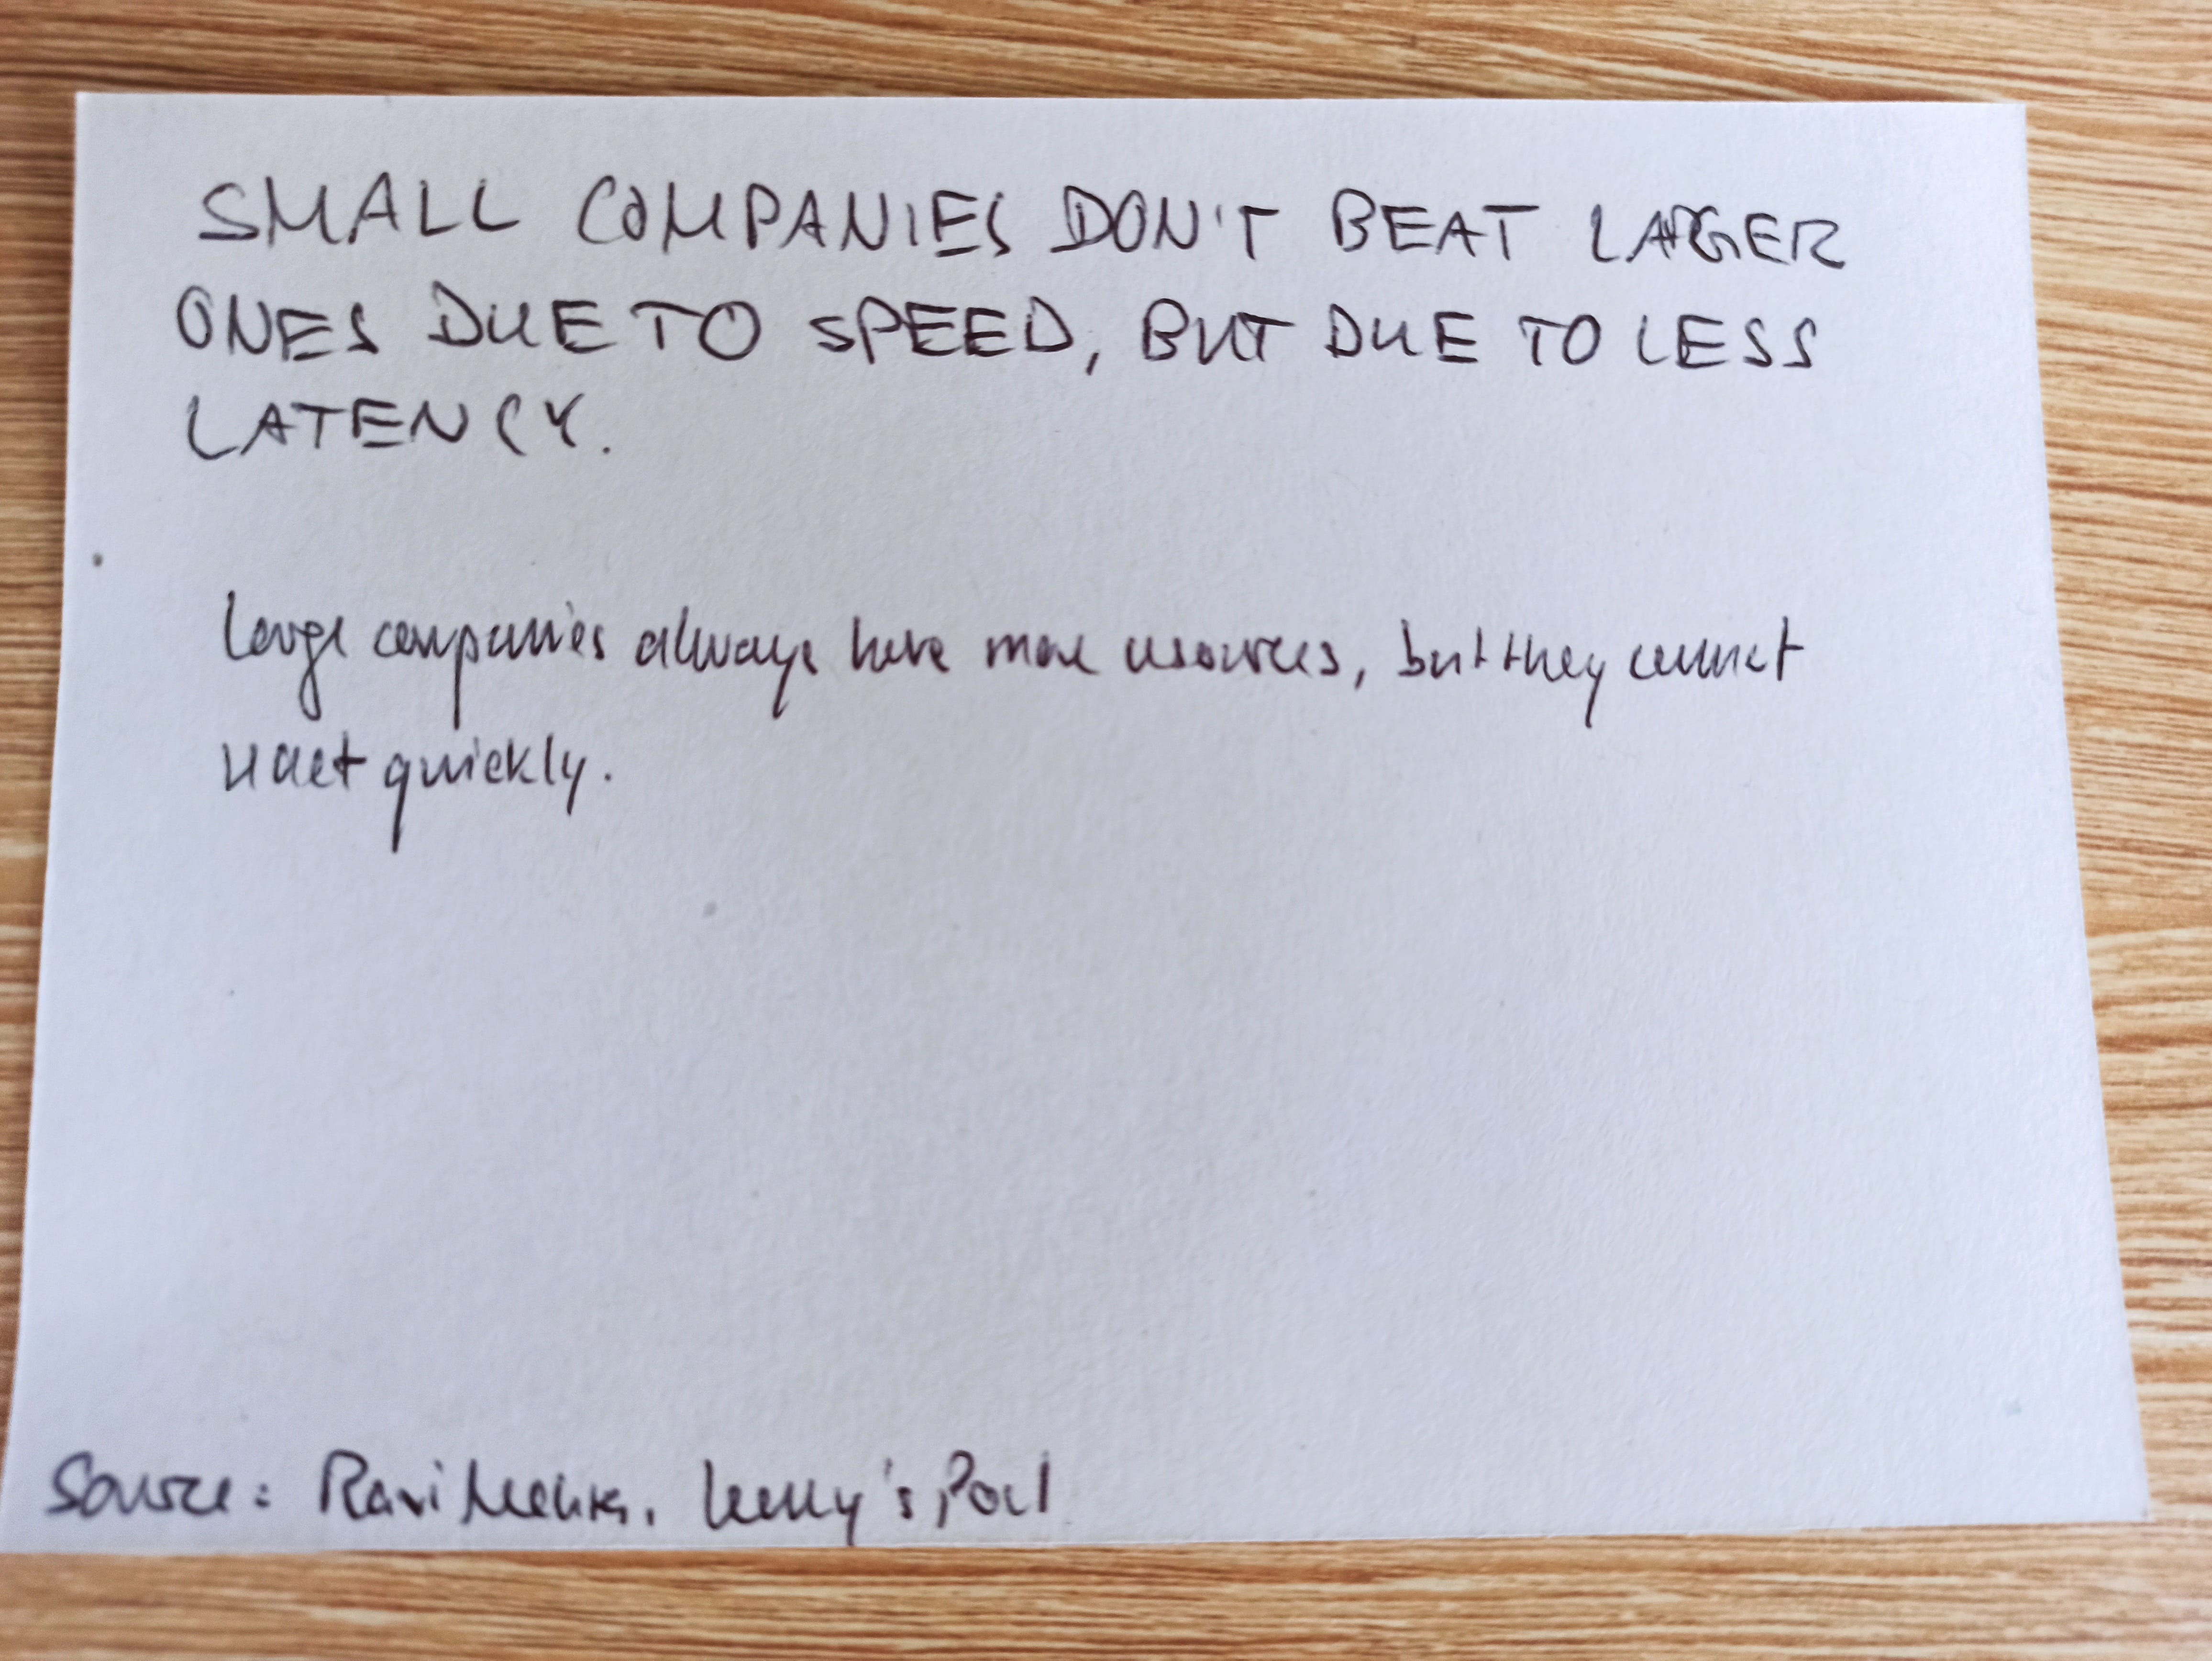 SMALL COMPANIES DON'T BEAT LARGER
ONES DUE TO SPEED, BUT DUE TO LESS
LATENCY.
Large companies always have more resources, but they cannot
react quickly.
Source: Ravi Mehta, Lenny's Pod